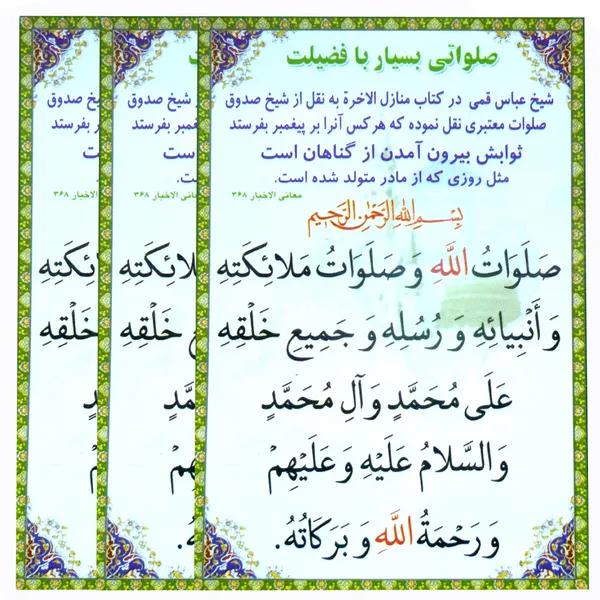 صلواتی بسیار با فضیلت
شیخ عباس قمی در کتاب منازل الاخرة به نقل از شیخ صدوق
صلوات معتبری نقل نموده که هر کس آنرا بر پیغمبر بفرستد
ثوابش بیرون آمدن از گناهان است
مثل روزی که از مادر متولد شده است.
معانی الاخبار ۳۶۸
بِسْمِ اللهِ الرَّحْمٰنِ الرَّحِيمِ
صَلَوَاتُ اللَّهِ وَ صَلَوَاتُ مَلَائِكَتِهِ
وَ أَنْبِيائِهِ وَ رُسُلِهِ وَ جَمِيعِ خَلْقِهِ
عَلَى مُحَمَّدٍ وَ آلِ مُحَمَّدٍ
وَ السَّلَامُ عَلَيْهِ وَ عَلَيْهِمْ
وَ رَحْمَةُ اللَّهِ وَ بَرَكَاتُهُ.